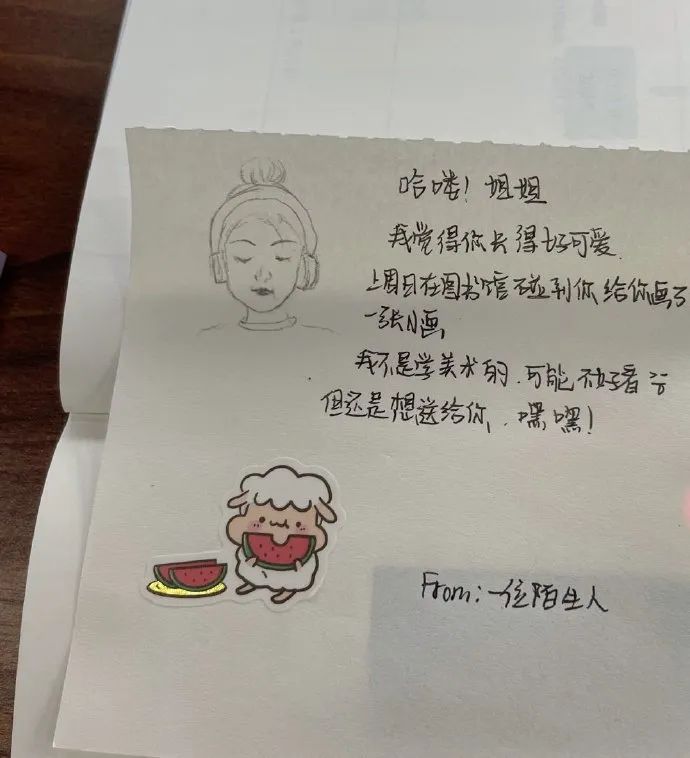 哈喽！姐姐
我觉得你长得好可爱.
上周日在图书馆碰到你给你画了
一张小画,
我不是学美术的.可能不好看
但还是想送给你,嘿嘿!
From:一位陌生人